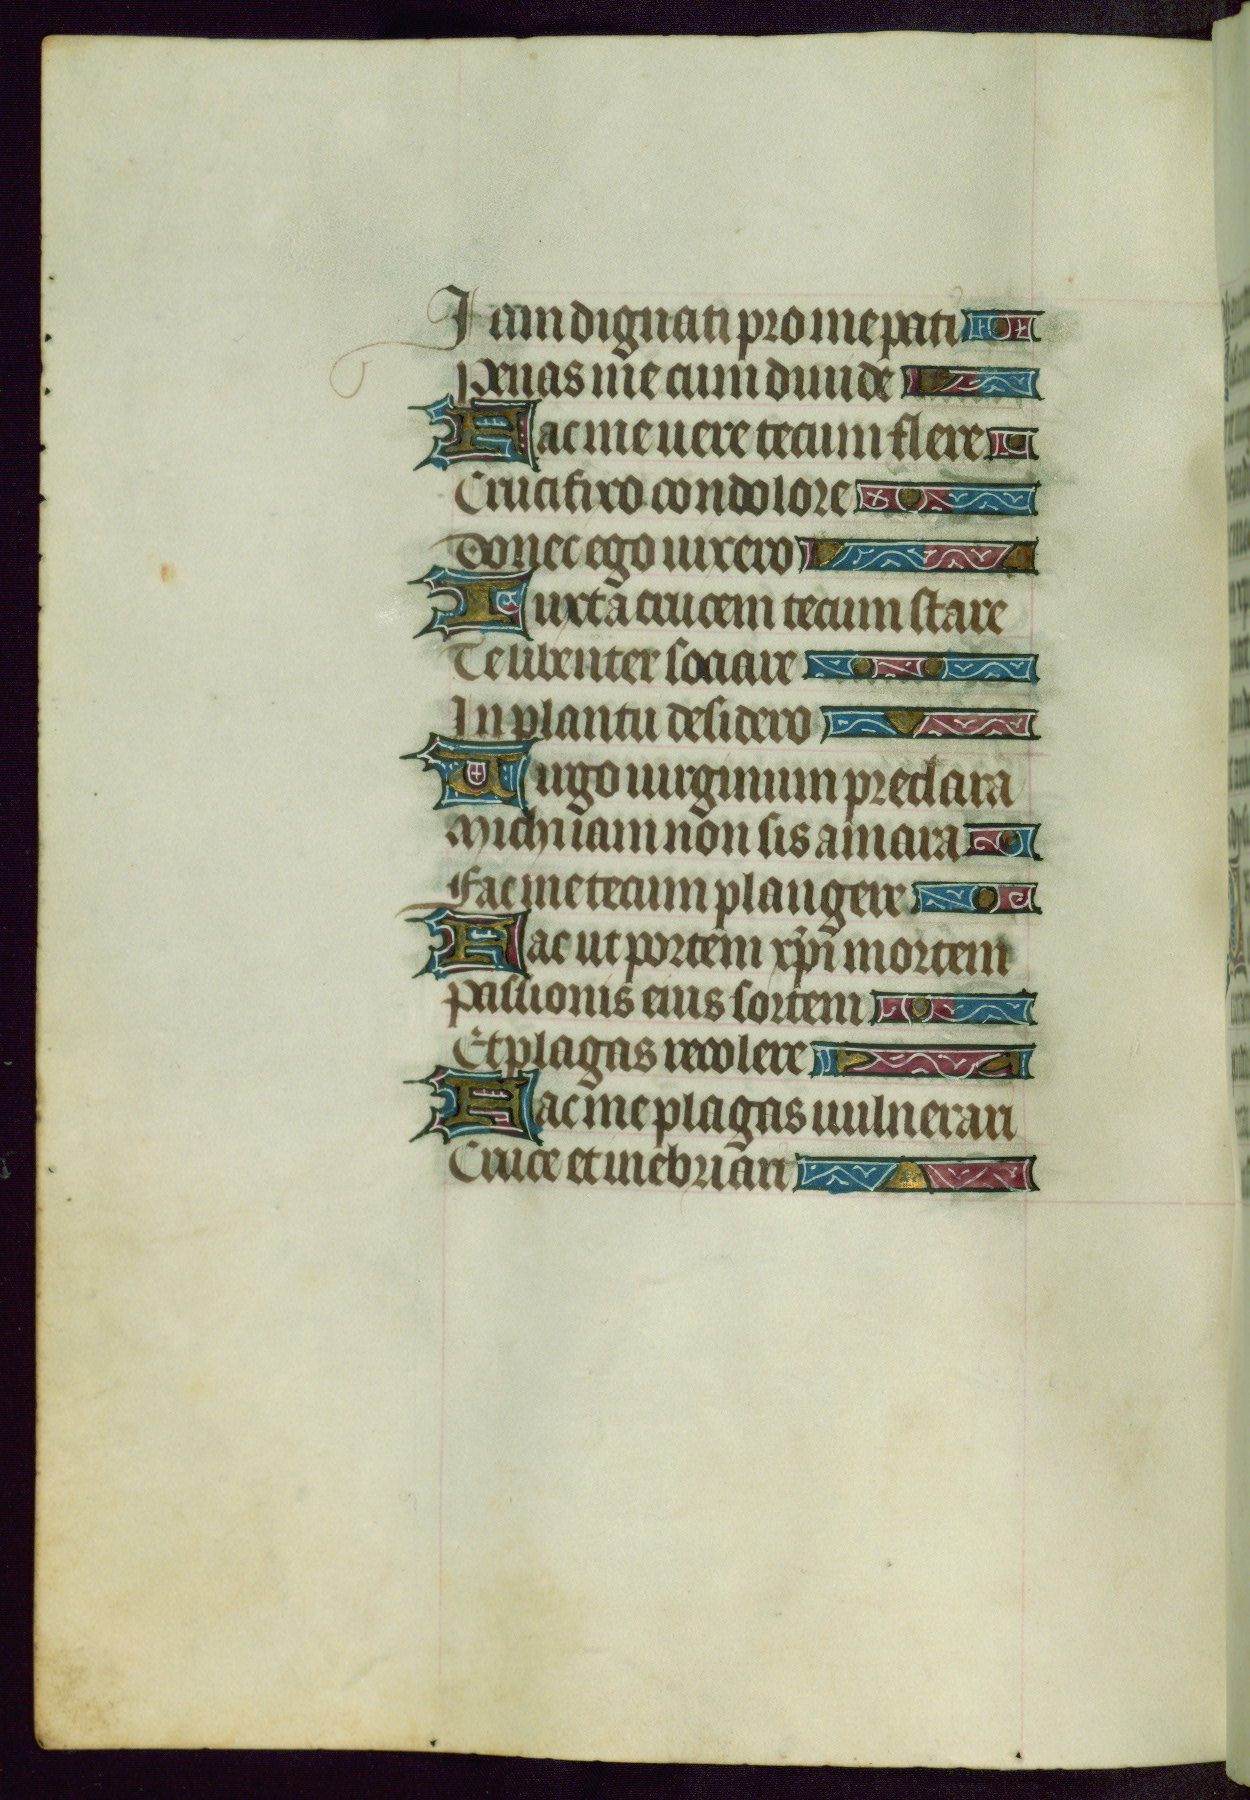 Iam dignati pro me pati
Penas me cum diuide
Fac me uere tecum flere
Crucifixo condolore
Donec ego uixero
Iuxta crucem tecum stare
Te libenter sociare
In plantu desidero
Uirgo uirginum preclara
Michi iam non sis amara
Fac me tecum plangere
Fac ut portem xp̄i mortem
Passionis eius sortem
Et plagas recolere
Fac me plagas uulnerari
Cruce et inebriari